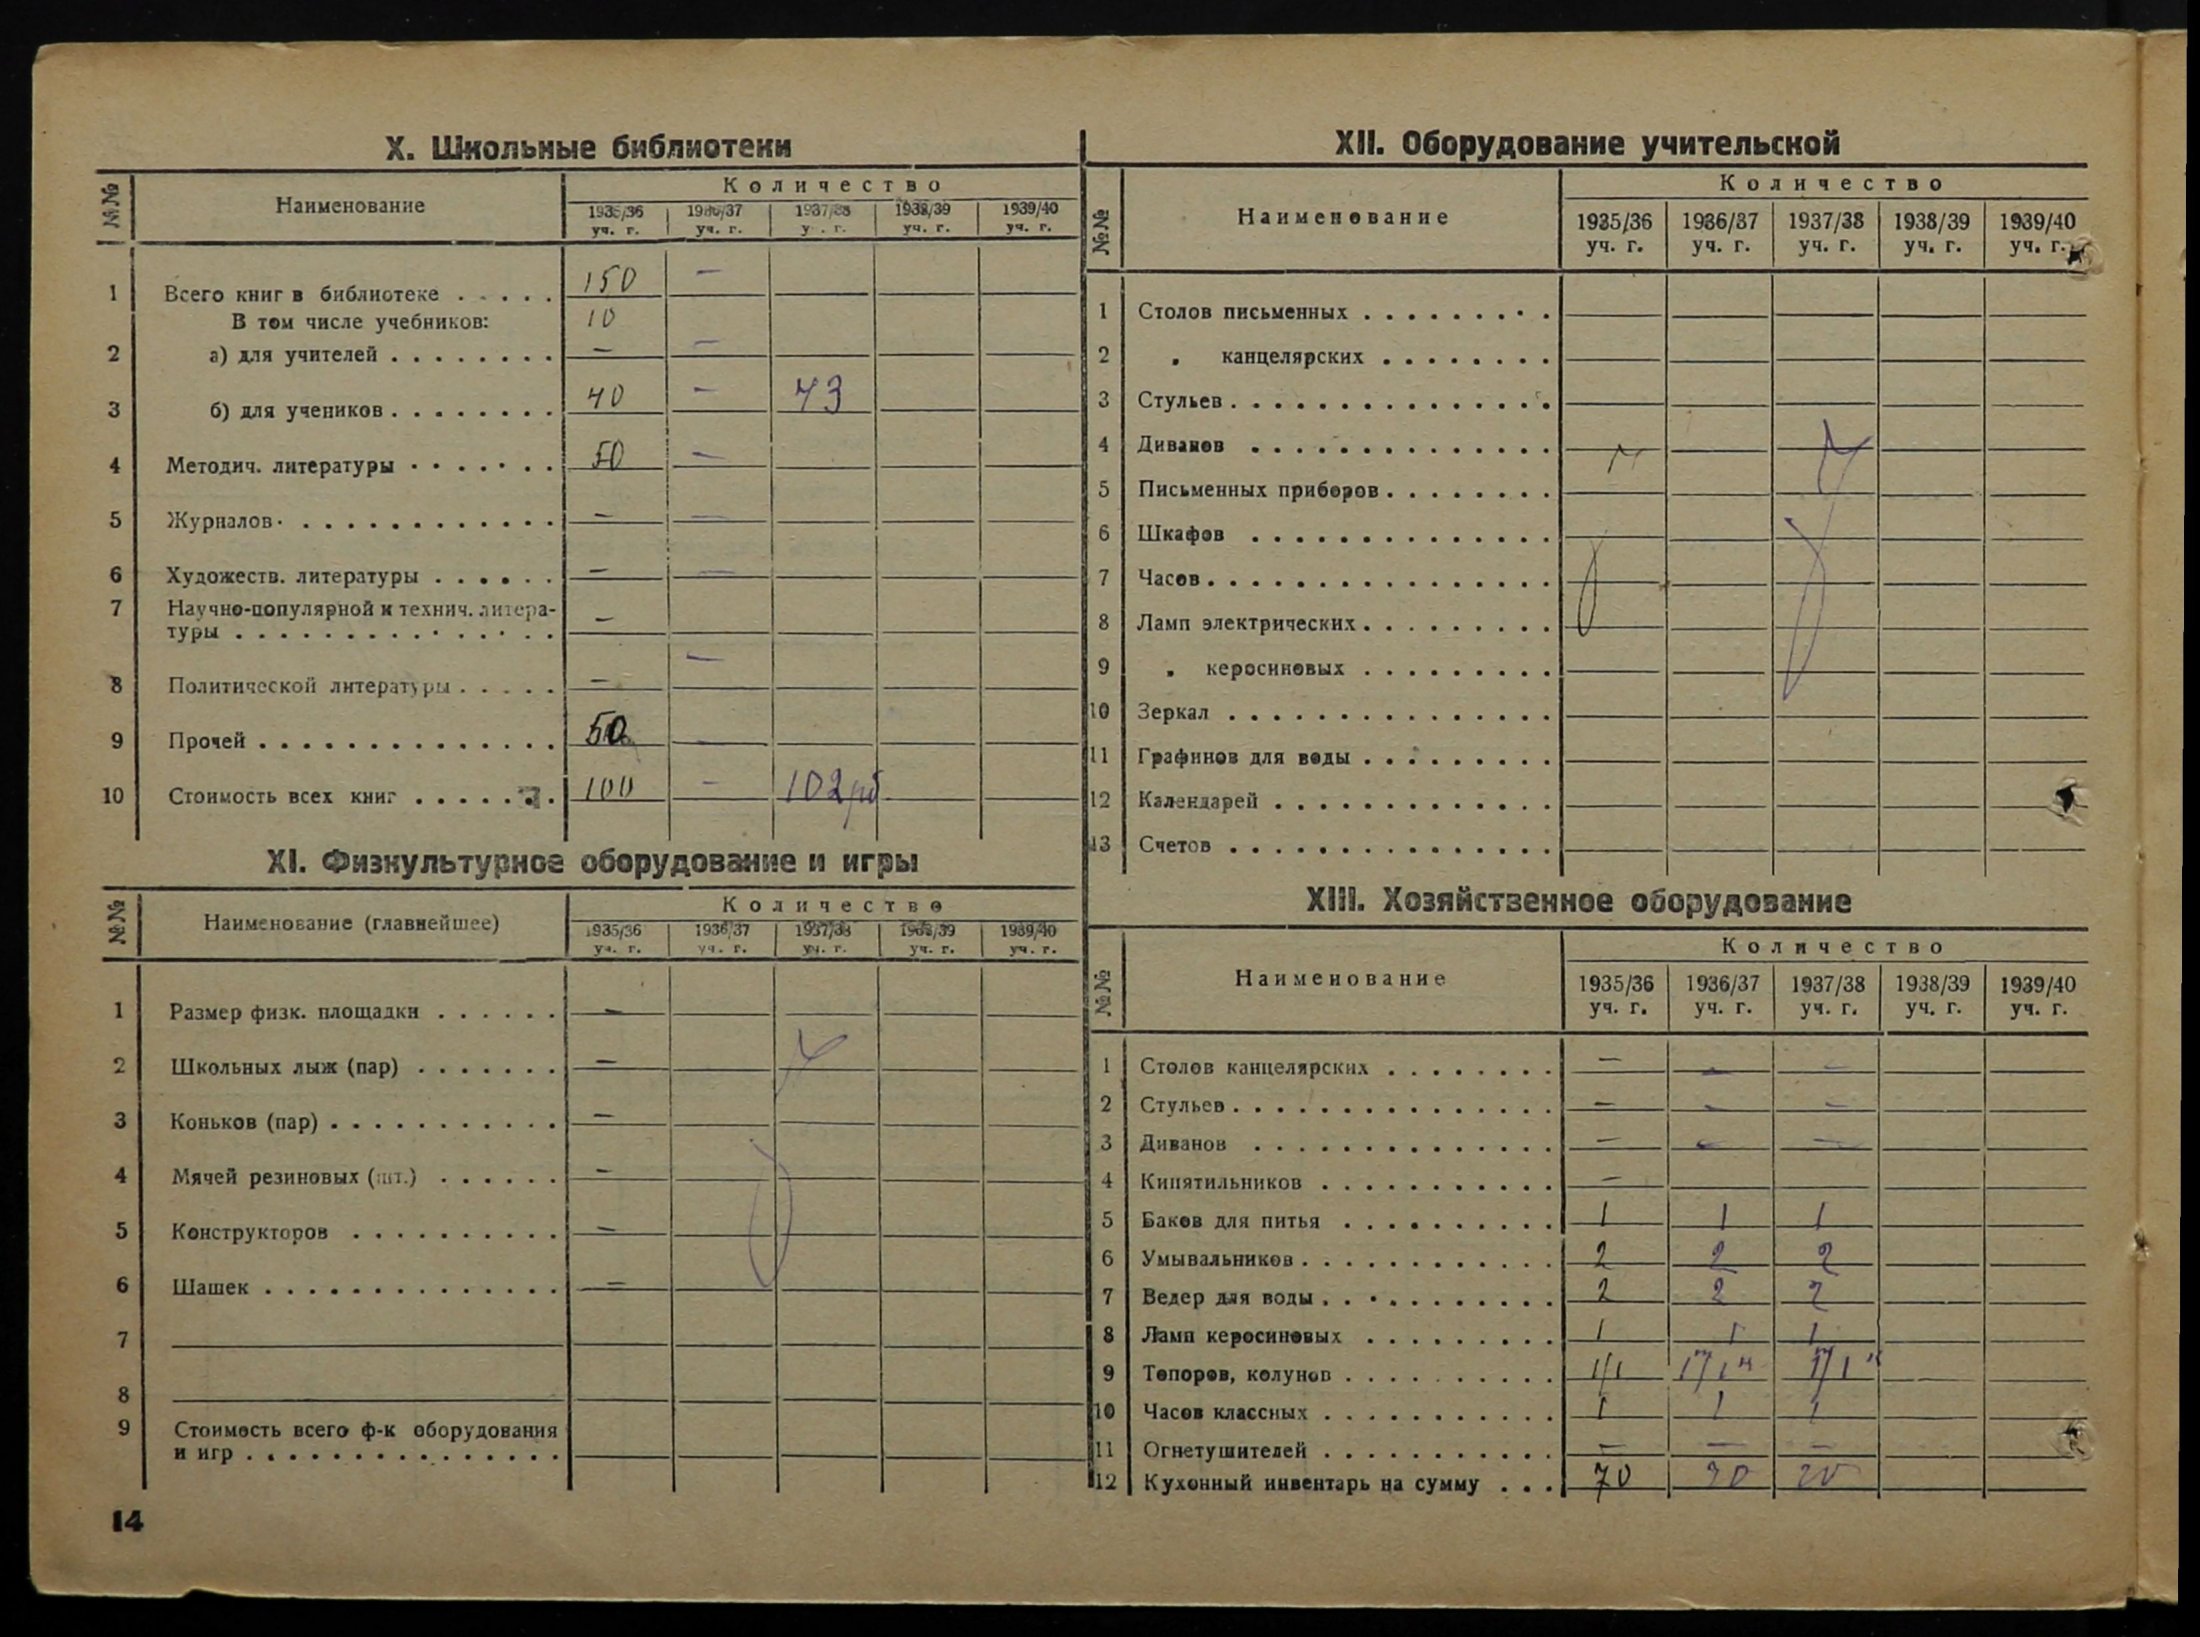 X. Школьные библиотеки
№№
Наименование
Количество
1935/36 уч. г.
1936/37 уч. г.
1937/38 у. г.
1938/39 уч. г.
1939/40 уч. г.
1 Всего книг в библиотеке . . . . . 150 —
В том числе учебников: 10
2 а) для учителей . . . . . . . . — —
3 б) для учеников . . . . . . . . 40 — 43
4 Методич. литературы . . . . . . . 50 —
5 Журналов . . . . . . . . . . . . . — —
6 Художеств. литературы . . . . . . — —
7 Научно-популярной и технич. литера-
туры . . . . . . . . . . . . . . . —
8 Политической литературы . . . . . — —
9 Прочей . . . . . . . . . . . . . . 50 —
10 Стоимость всех книг . . . . . . . 100 — 102 рб
XI. Физкультурное оборудование и игры
№№
Наименование (главнейшее)
Количество
1935/36 уч. г.
1936/37 уч. г.
1937/38 уч. г.
1938/39 уч. г.
1939/40 уч. г.
1 Размер физк. площадки . . . . . . —
2 Школьных лыж (пар) . . . . . . . —
3 Коньков (пар) . . . . . . . . . . . —
4 Мячей резиновых (шт.) . . . . . . —
5 Конструкторов . . . . . . . . . . —
6 Шашек . . . . . . . . . . . . . . —
7
8
9 Стоимость всего ф-к оборудования
и игр . . . . . . . . . . . . . . .
14
XII. Оборудование учительской
№№
Наименование
Количество
1935/36 уч. г.
1936/37 уч. г.
1937/38 уч. г.
1938/39 уч. г.
1939/40 уч. г.
1 Столов письменных . . . . . . . . .
2 „ канцелярских . . . . . . . .
3 Стульев . . . . . . . . . . . . . . .
4 Диванов . . . . . . . . . . . . . .
5 Письменных приборов . . . . . . . .
6 Шкафов . . . . . . . . . . . . . .
7 Часов . . . . . . . . . . . . . . . .
8 Ламп электрических . . . . . . . . .
9 „ керосиновых . . . . . . . . .
10 Зеркал . . . . . . . . . . . . . . .
11 Графинов для воды . . . . . . . . .
12 Календарей . . . . . . . . . . . . .
13 Счетов . . . . . . . . . . . . . . .
XIII. Хозяйственное оборудование
№№
Наименование
Количество
1935/36 уч. г.
1936/37 уч. г.
1937/38 уч. г.
1938/39 уч. г.
1939/40 уч. г.
1 Столов канцелярских . . . . . . . . — — —
2 Стульев . . . . . . . . . . . . . . . — — —
3 Диванов . . . . . . . . . . . . . . — — —
4 Кипятильников . . . . . . . . . . . —
5 Баков для питья . . . . . . . . . . 1 1 1
6 Умывальников . . . . . . . . . . . . 2 2 2
7 Ведер для воды . . . . . . . . . . . 2 2 2
8 Ламп керосиновых . . . . . . . . . 1 1 1
9 Топоров, колунов . . . . . . . . . . 1/1
10 Часов классных . . . . . . . . . . . 1 1 1
11 Огнетушителей . . . . . . . . . . . — — —
12 Кухонный инвентарь на сумму . . . 70